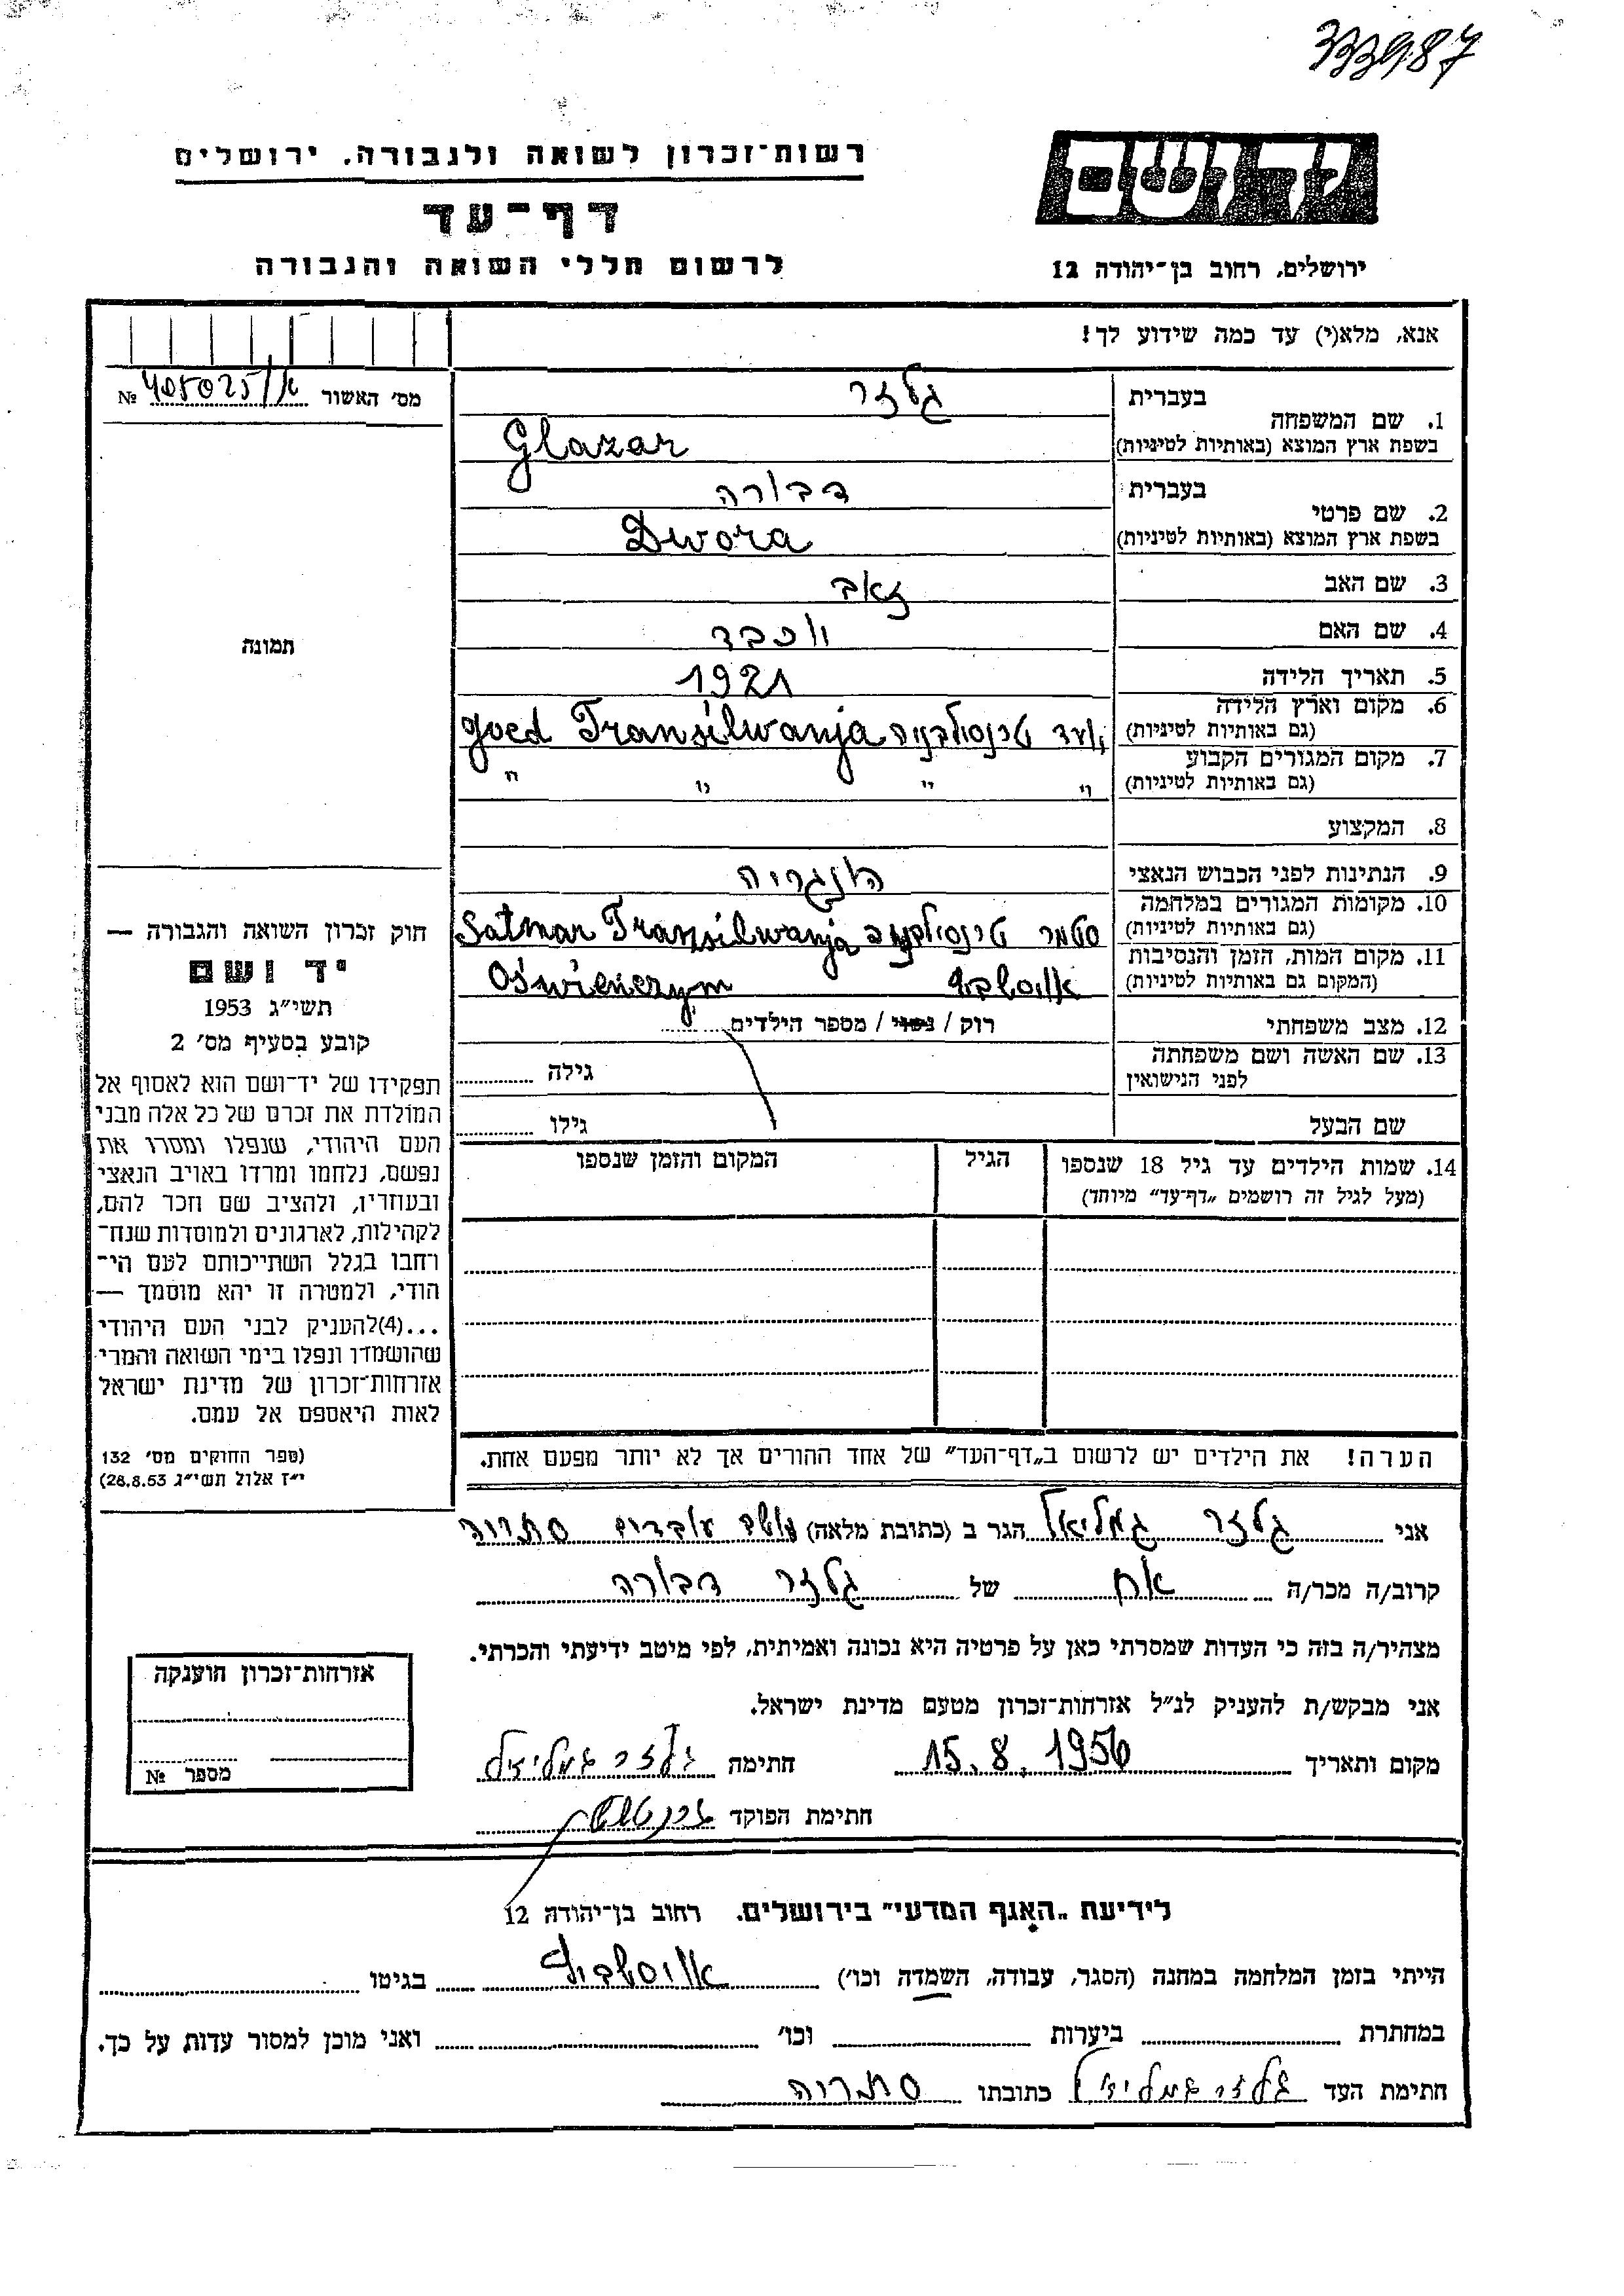 333987
יד ושם
רשות־זכרון לשואה ולגבורה, ירושלים
דף־עד
לרשום חללי השואה והגבורה
ירושלים, רחוב בן־יהודה 12
אנא, מלא(י) עד כמה שידוע לך!
מס׳ האשור א/405025 №
1. שם המשפחה
בעברית גלזר
בשפת ארץ המוצא (באותיות לטיניות) Glazar
2. שם פרטי
בעברית דבורה
בשפת ארץ המוצא (באותיות לטיניות) Dwora
3. שם האב זאב
4. שם האם יוכבד
5. תאריך הלידה 1921
6. מקום וארץ הלידה
(גם באותיות לטיניות) טרנסולבניה Transilwanja
7. מקום המגורים הקבוע
(גם באותיות לטיניות) " " " "
8. המקצוע
9. הנתינות לפני הכבוש הנאצי הונגריה
10. מקומות המגורים במלחמה
(גם באותיות לטיניות) סטמר טרנסולבניה Satmar Transilwanja
11. מקום המות, הזמן והנסיבות
(המקום גם באותיות לטיניות) אושוויץ Oświenczym
12. מצב משפחתי רוק / נשוי / מספר הילדים
13. שם האשה ושם משפחתה
לפני הנישואין גילה
שם הבעל גילו
14. שמות הילדים עד גיל 18 שנספו
(מעל לגיל זה רושמים „דף־עד״ מיוחד)
הגיל
המקום והזמן שנספו
הערה! את הילדים יש לרשום ב„דף־העד״ של אחד ההורים אך לא יותר מפעם אחת.
תמונה
חוק זכרון השואה והגבורה —
יד ושם
תשי״ג 1953
קובע בסעיף מס׳ 2
תפקידו של יד־ושם הוא לאסוף אל
המולדת את זכרם של כל אלה מבני
העם היהודי, שנפלו ומסרו את
נפשם, נלחמו ומרדו באויב הנאצי
ובעוזריו, ולהציב שם וזכר להם,
לקהילות, לארגונים ולמוסדות שנח־
רחבו בגלל השתייכותם לעם הי־
הודי, ולמטרה זו יהא מוסמך —
...(4)להעניק לבני העם היהודי
שהושמדו ונפלו בימי השואה והמרי
אזרחות־זכרון של מדינת ישראל
לאות היאספם אל עמם.
(ספר החוקים מס׳ 132
י״ז אלול תשי״ג 28.8.53)
אני גלזר גמליאל הגר ב (כתובת מלאה) מושב עובדים סתריה
קרוב/ה מכר/ה אח של גלזר דבורה
מצהיר/ה בזה כי העדות שמסרתי כאן על פרטיה היא נכונה ואמיתית, לפי מיטב ידיעתי והכרתי.
אני מבקש/ת להעניק לנ״ל אזרחות־זכרון מטעם מדינת ישראל.
מקום ותאריך 15.8.1956 חתימה גלזר גמליאל
חתימת הפוקד
אזרחות־זכרון הוענקה
מספר №
לידיעת „האגף המדעי״ בירושלים. רחוב בן־יהודה 12
הייתי בזמן המלחמה במחנה (הסגר, עבודה, השמדה וכו׳) אושוויץ בגיטו
במחתרת ביערות וכו׳ ואני מוכן למסור עדות על כך.
חתימת העד גלזר גמליאל כתובתו סתריה